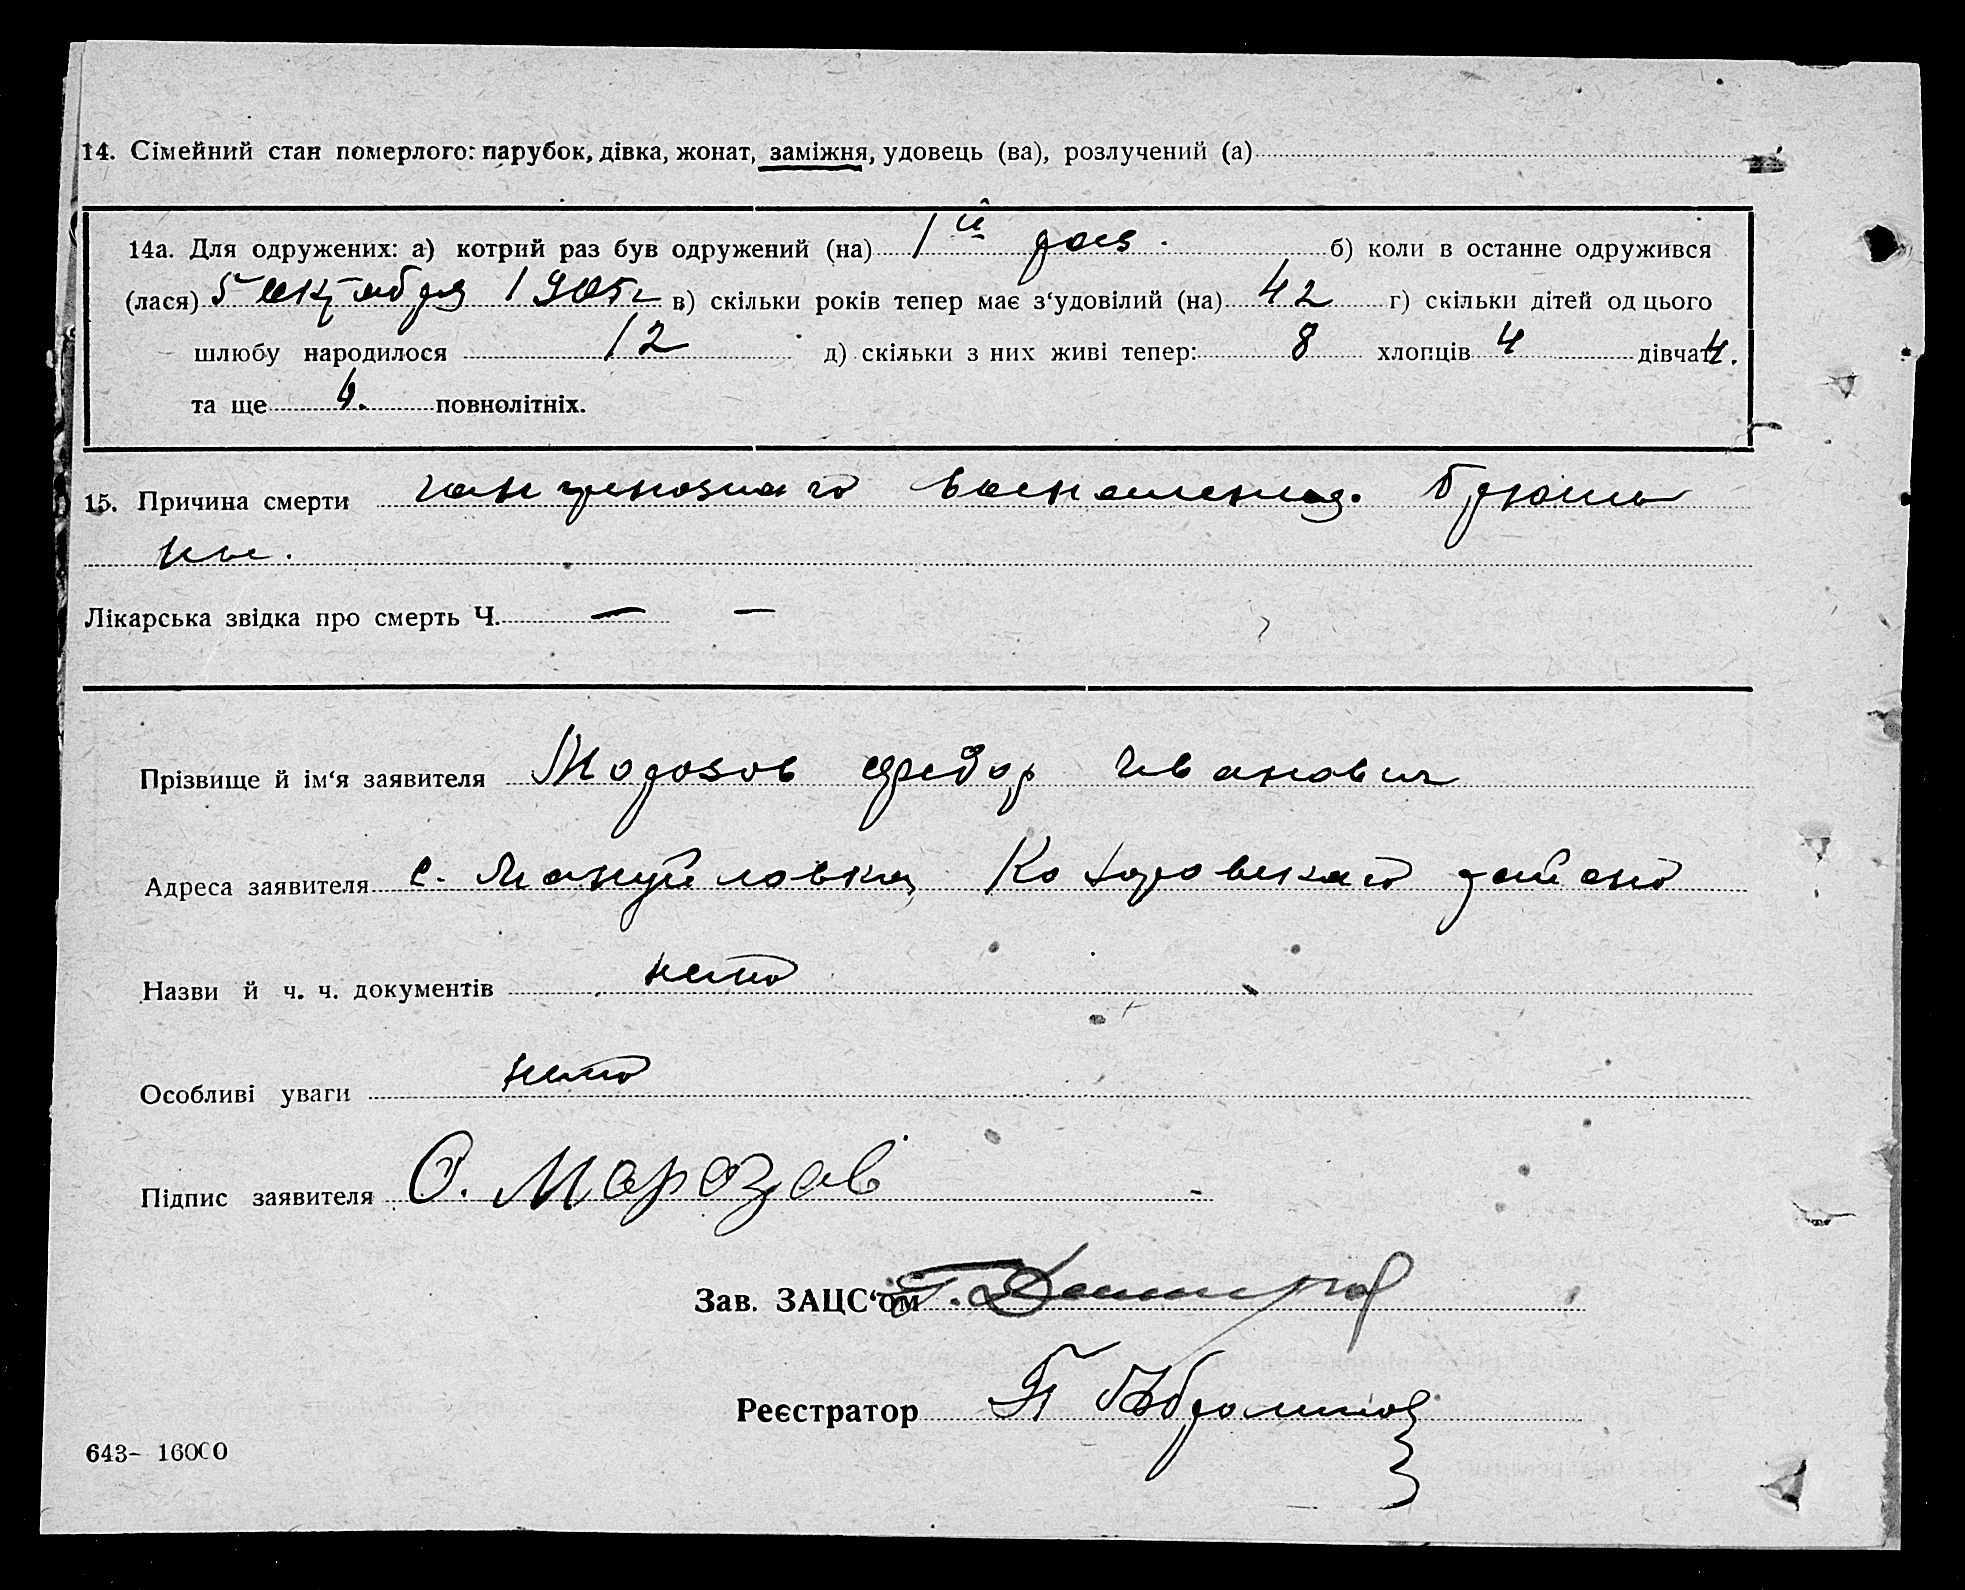 14. Сімейний стан померлого: парубок, дівка, жонат, заміжня, удовець (ва), розлучений (а)
14а. Для одружених: а) котрий раз був одружений (на) 1й раз. б) коли в останне одружився
(лася) 5 октября 1905 г в) скільки років тепер має з‘удовілий (на) 42 г) скільки дітей од цього
шлюбу народилося 12 д) скільки з них живі тепер: 8 хлопців 4 дівчат 4.
та ще 4. повнолітніх.
15. Причина смерти гангренозного воспаления брюши
ны.
Лікарська звідка про смерть Ч. — —
Прізвище й ім‘я заявителя Морозов Федор Иванович
Адреса заявителя с. Мануйловка района
Назви й ч. ч. документів нет
Особливі уваги нет
Підпис заявителя Морозов
Зав. ЗАЦС‘ом
Реєстратор
643- 16000